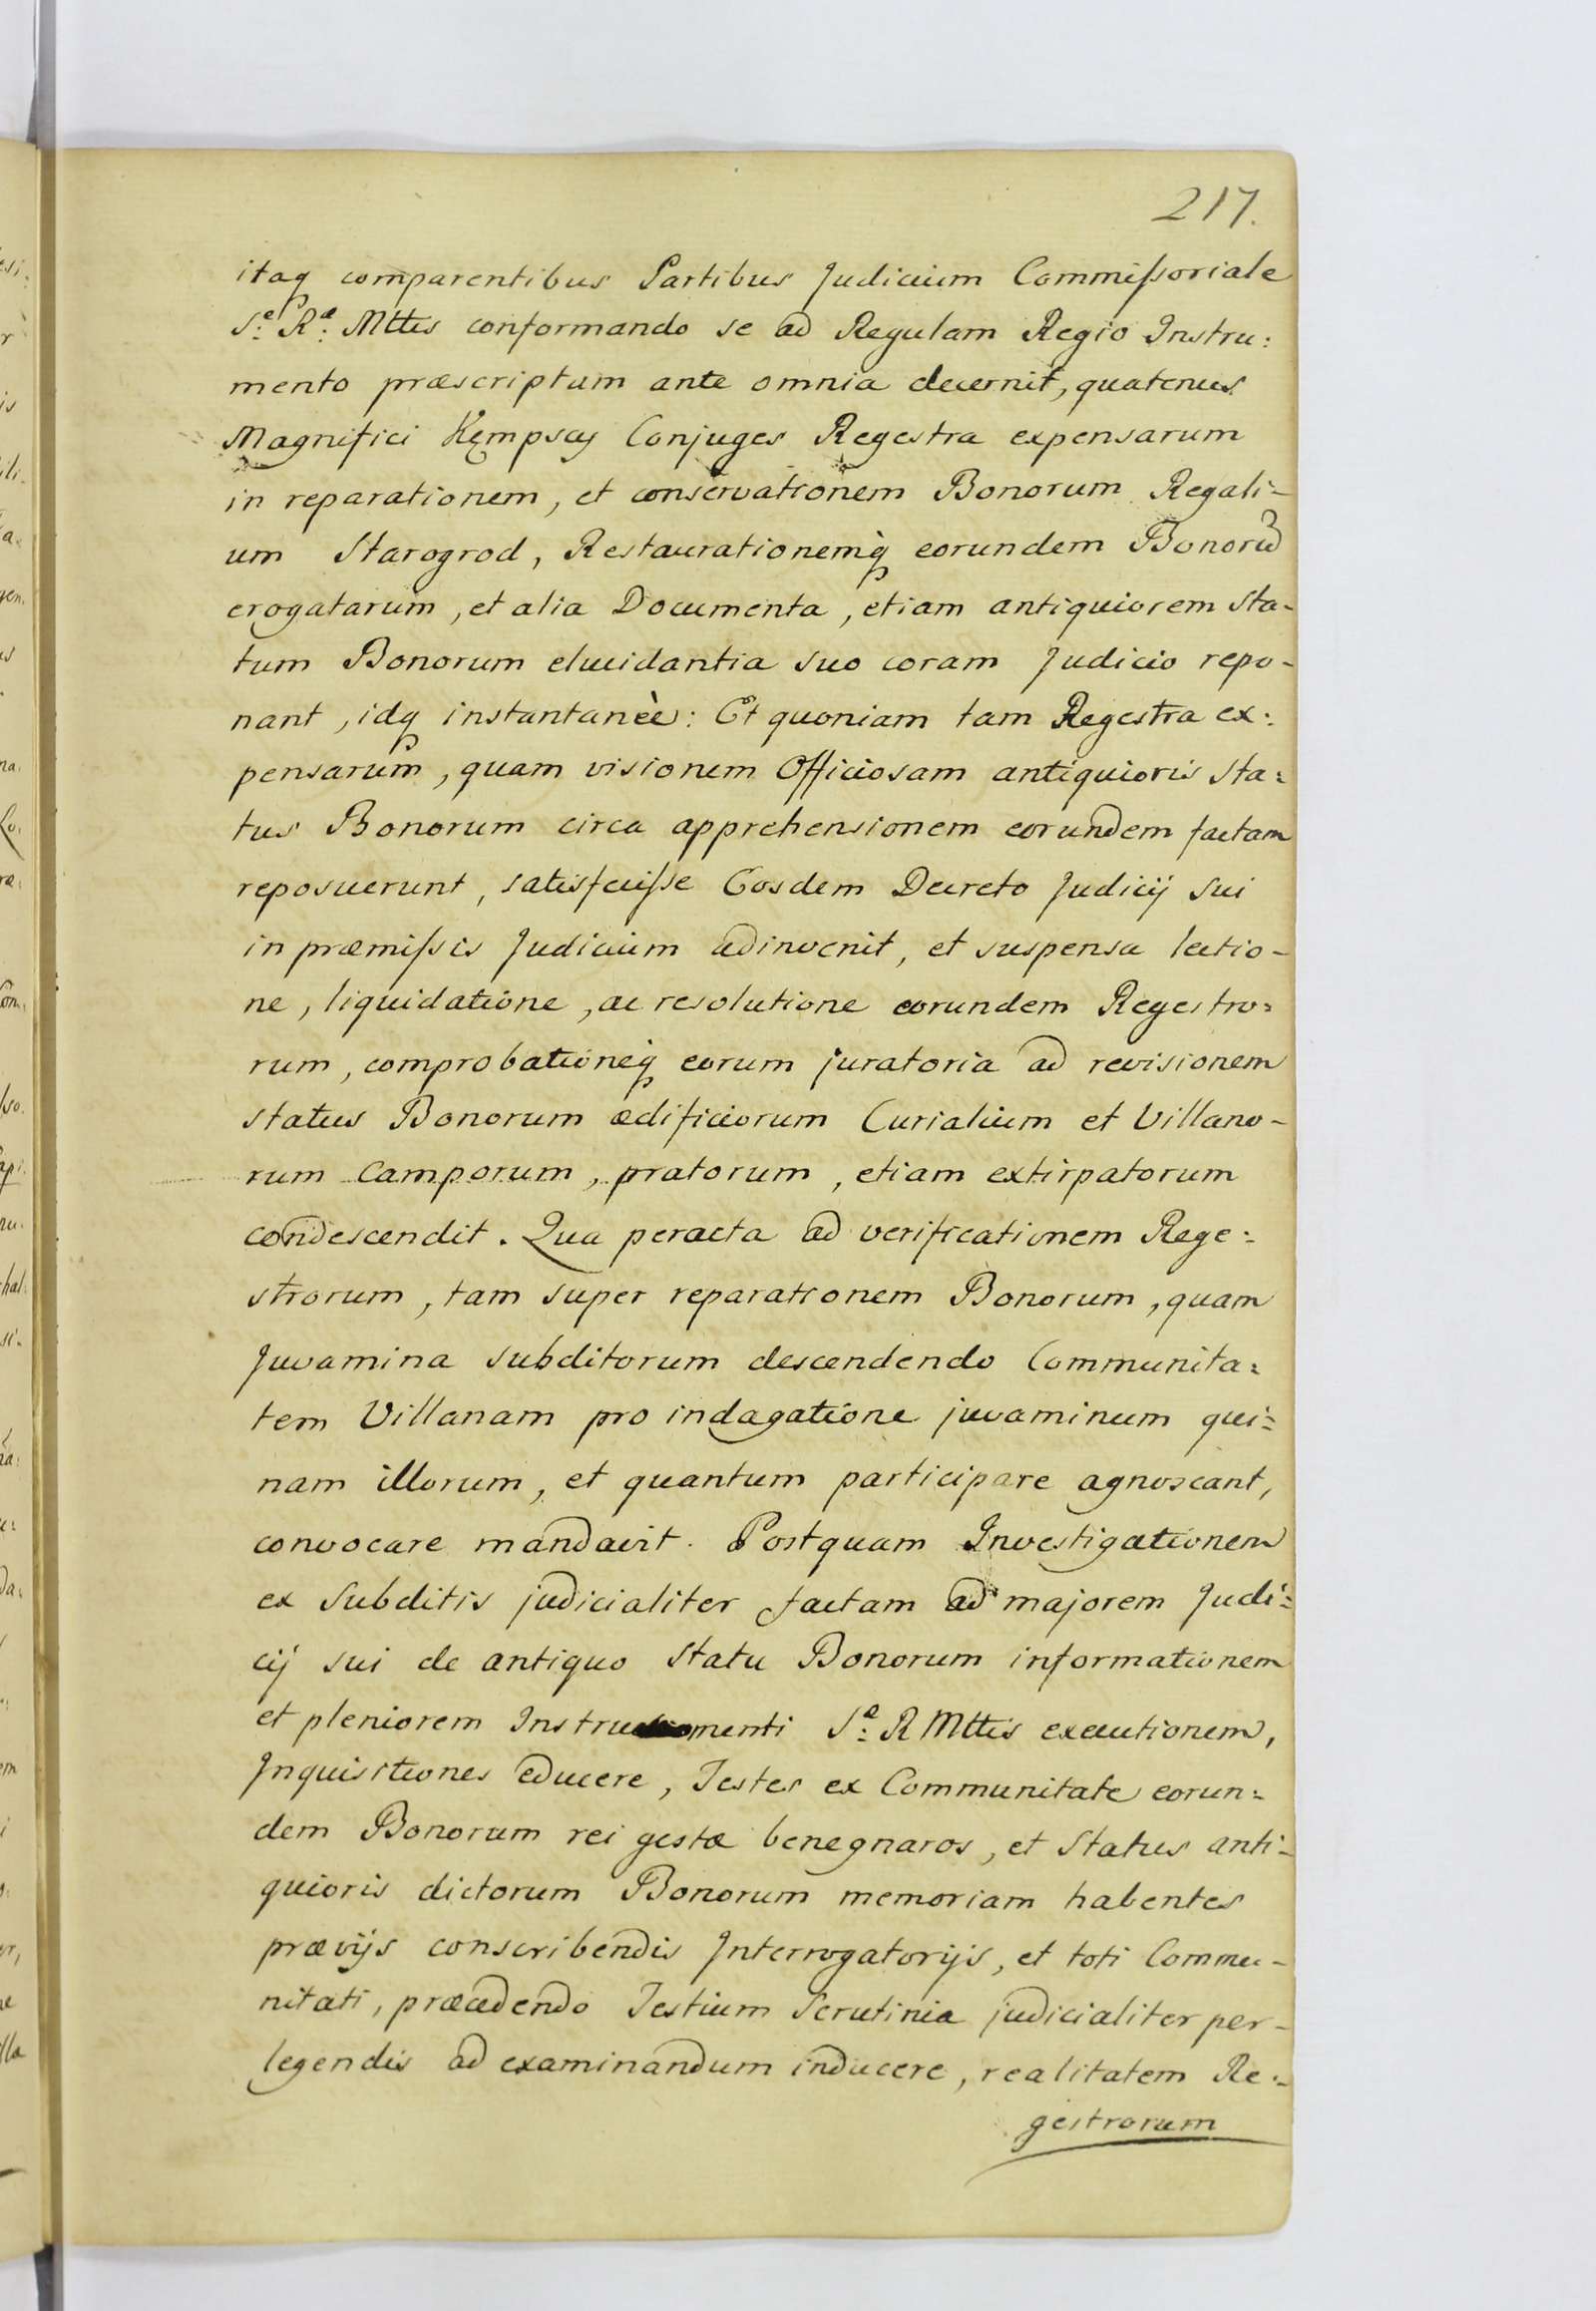 217.
itaq comparentibus Partibus Judicium Commissoriale
S:e R:æ Mttis conformando se ad Regulam Regio Instru:
mento præscriptam ante omnia decernit, quatenus
Magnifici Kępscy Conjuges Regestra expensarum
in reparationem, et conservationem Bonorum Regali-
um Starogrod, Restaurationemq eorundem Bonorū
erogatarum, et alia Documenta, etiam antiquiorem Sta-
tum Bonorum elucidantia suo coram Judicio repo-
nant, idq instantaneè: Et quoniam tam Regestra ex:
pensarum, quam visionem Officiosam antiquioris Sta:
tus Bonorum circa apprehensionem eorundem factam
reposuerunt, satisfecisse Eosdem Decreto Judicij Sui
in præmissis Judicium adinvenit, et suspensa lectio-
ne, liquidatione, ac resolutione eorundem Regestro:
rum, comprobationeq eorum juratoria ad revisionem
status Bonorum ædificiorum Curialium et Villano-
rum camporum, pratorum, etiam extirpatorum
condescendit. Qua peracta ad verificationem Rege:
strorum, tam super reparationem Bonorum, quam
Juvamina subditorum descendendo Communita:
tem Villanam pro indagatione juvaminum qui:
nam illorum, et quantum participare agnoscant,
convocare mandavit. Postquam Investigationem
ex Subditis judicialiter factam ad majorem Judi:
cij sui de antiquo Statu Bonorum informationem
et pleniorem Instrumenti S:æ R Mttis executionem,
Inquisitiones educere, Testes ex Communitate eorun:
dem Bonorum rei gestæ benegnaros, et Status anti-
quioris dictorum Bonorum memoriam habentes
prævijs conscribendis Interrogatorijs, et toti Commu-
nitati, præcedendo Testium Scrutinia judicialiter per-
legendis ad examinandum inducere, realitatem Re:
gestrorum